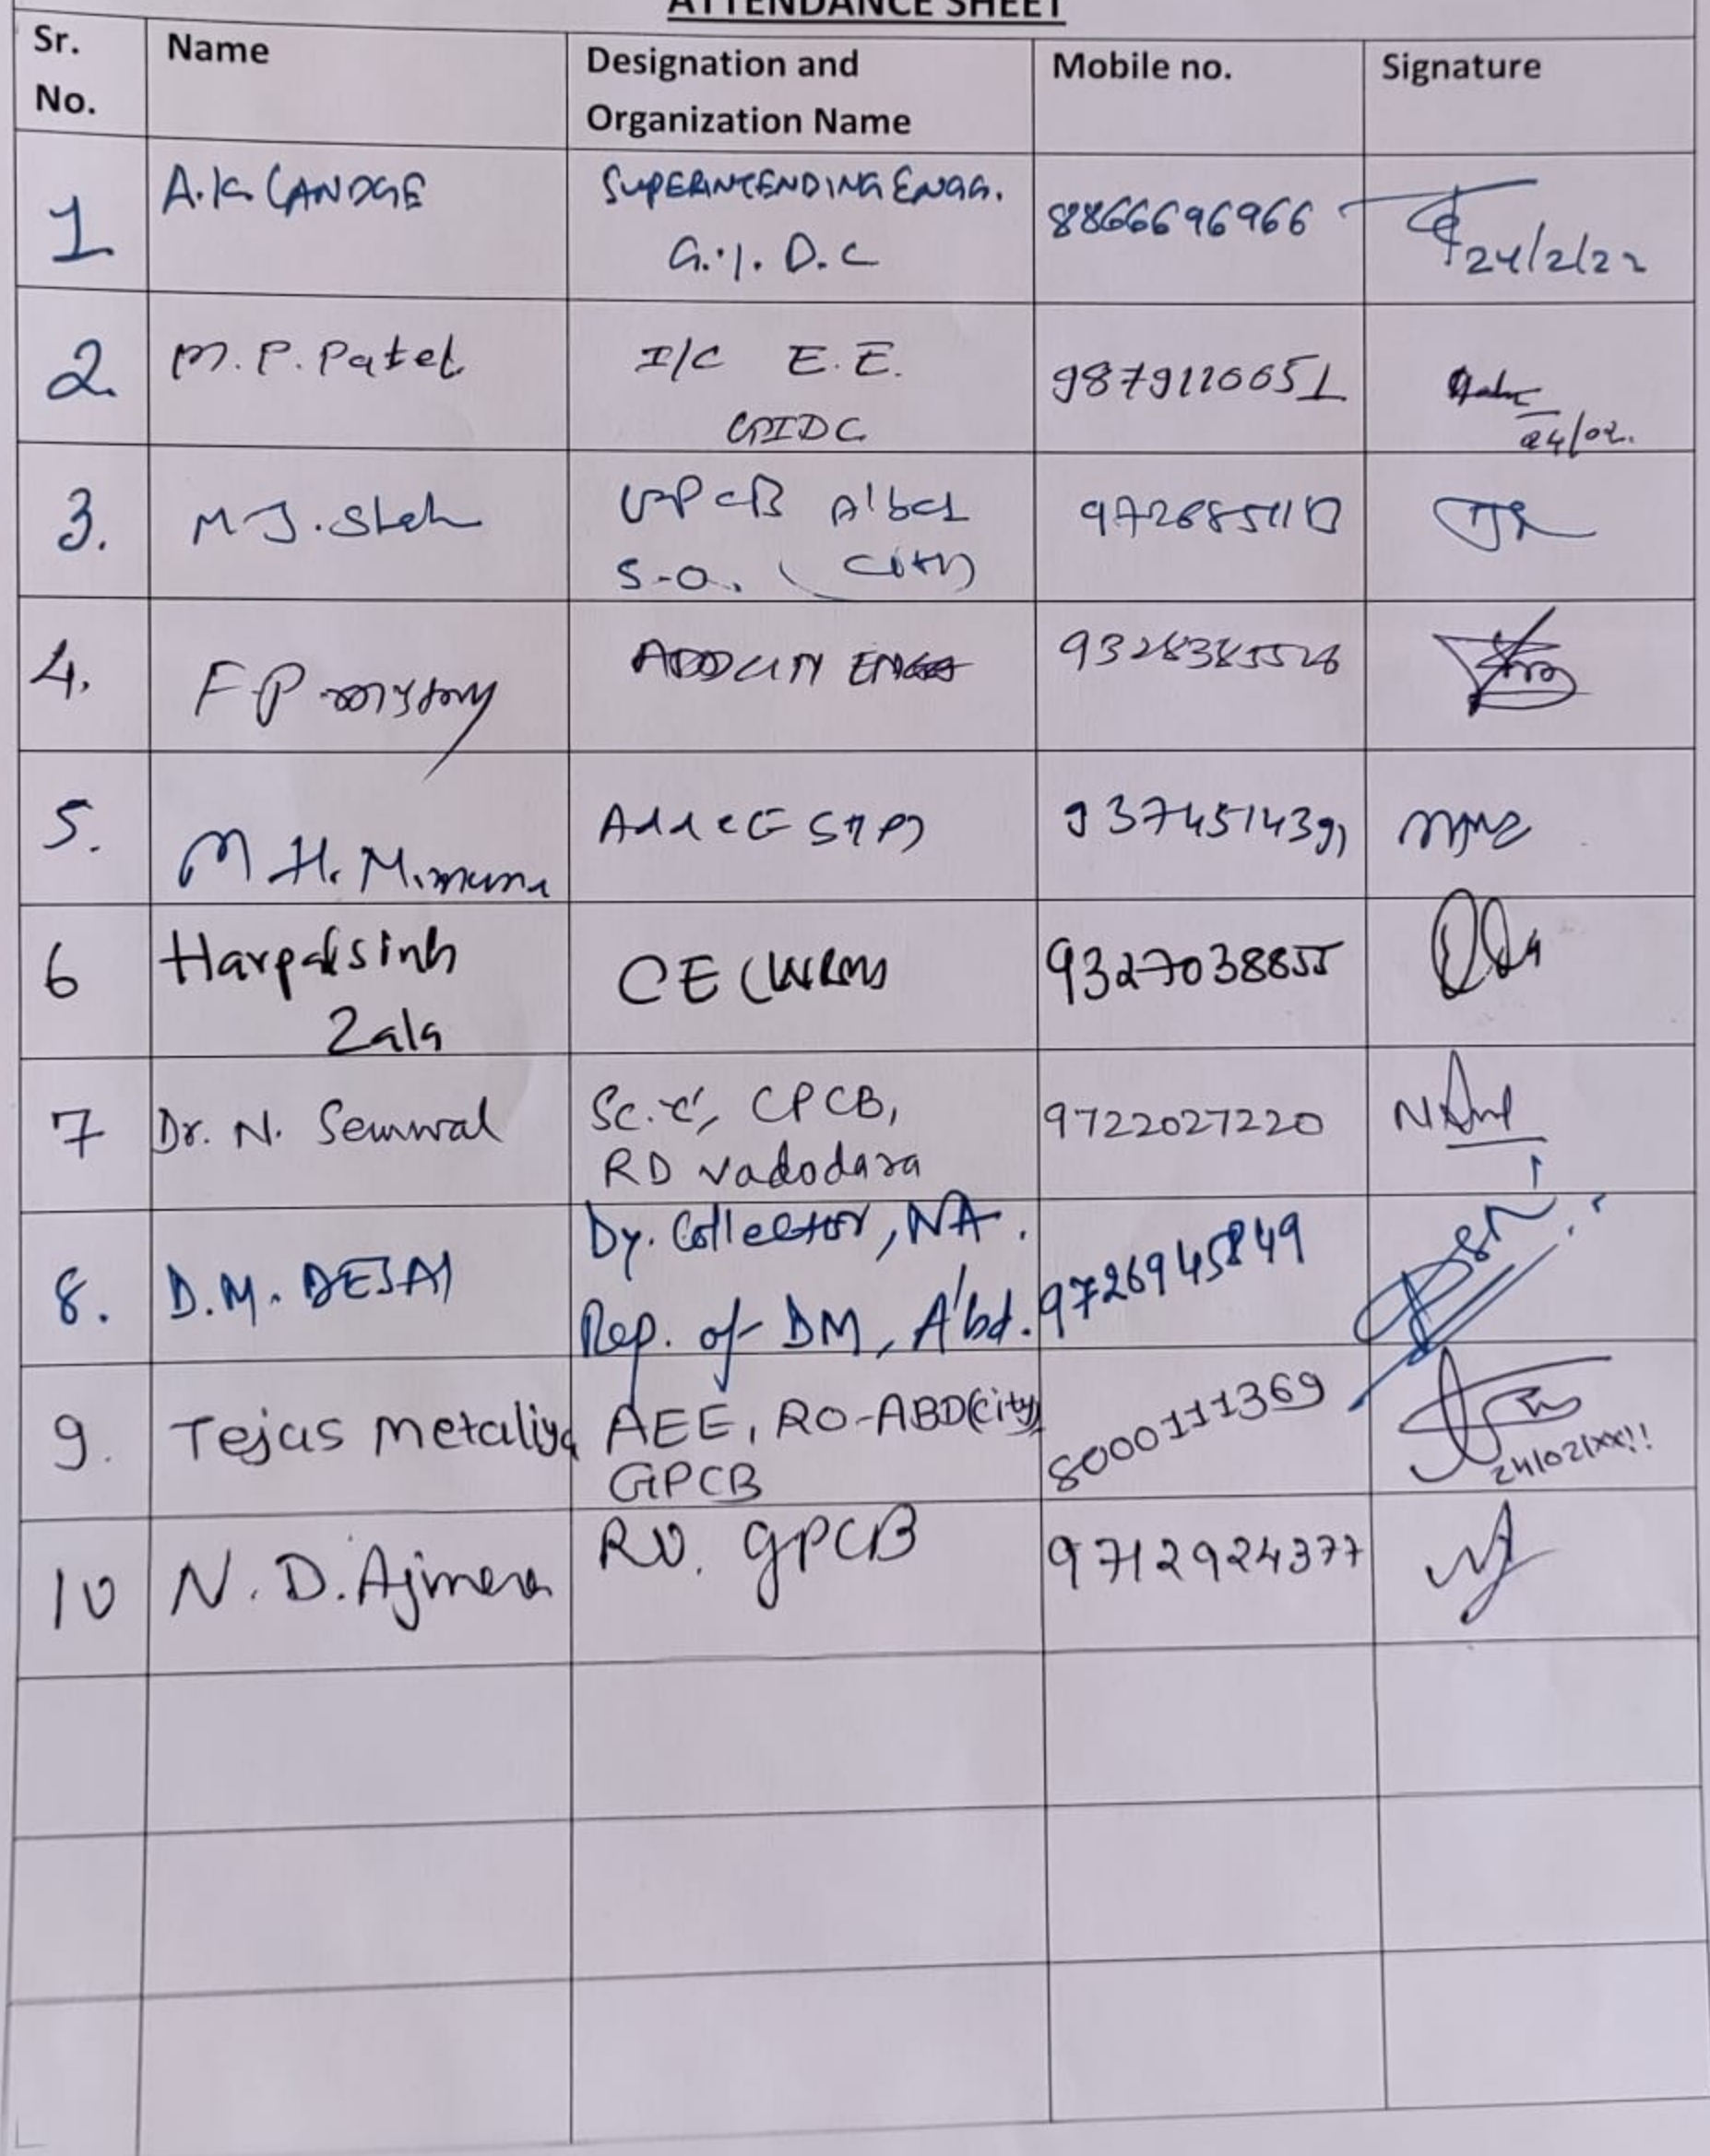 ATTENDANCE SHEET
Sr. No.
Name
Designation and
Organization Name
Mobile no.
Signature
1
A.K. LANDGE
SUPERINTENDING ENGG.
G.I.D.C
8866696966
24/2/22
2
M.P. Patel
I/C E.E.
GIDC
9879110051
24/02.
3.
M J. Shah
GPCB A'bad
S.O. (City)
4.
F P
ADD CITY ENGG
5.
M H.
Add CE STP
9374514391
6
Harpalsinh
Zala
CE
9327038855
7
Dr. N. Semwal
Sc. 'C', CPCB,
RD Vadodara
9722027220
8.
D.M. DESAI
Dy. Collector, NA.
Rep. of DM, A'bd.
9726945849
9.
Tejas Metaliya
AEE, RO-ABD(City)
GPCB
8000111369
10
N. D. Ajmera
RO. GPCB
9712924377